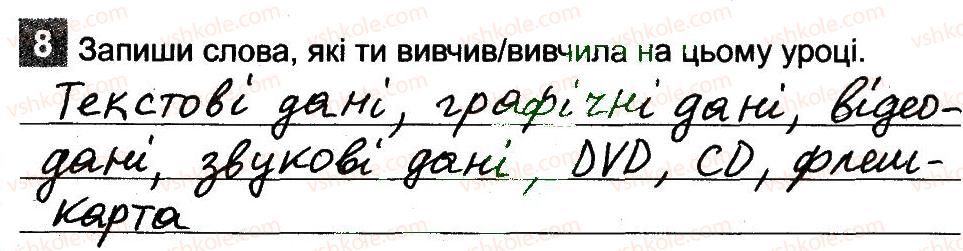 8 Запиши слова, які ти вивчив/вивчила на цьому уроці.
Текстові дані, графічні дані, відео-
дані, звукові дані, DVD, CD, флеш-
карта